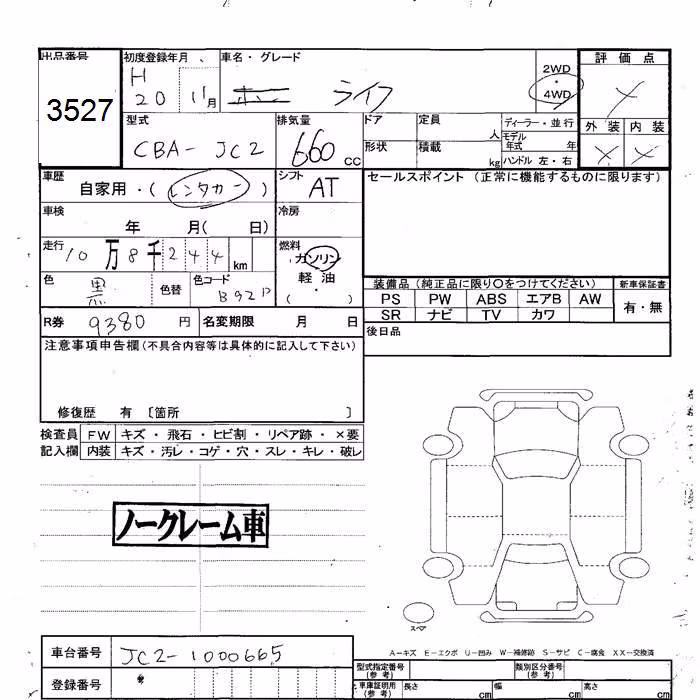 出品番号
3527
初度登録年月、
H 20 11月
車名・グレード
ライフ
2WD
・
4WD
評価点
外装 内装
型式
CBA-JC2
排気量
660cc
ドア
定員
人
ディーラー・並行
モデル
年式 年
形状
積載
kg
ハンドル 左・右
車歴
自家用・(レンタカー)
シフト
AT
セールスポイント(正常に機能するものに限ります)
車検
年 月( 日)
冷房
走行
10万8千244km
燃料
ガソリン
・
軽油
( ・ )
色
黒
色替
色コード
B92P
装備品(純正品に限り○をつけてください)
新車保証書
PS PW ABS エアB AW
SR ナビ TV カワ
有・無
R券 9380円
名変期限 月 日
後日品
注意事項申告欄(不具合内容等は具体的に記入して下さい)
修復歴 有〔箇所 〕
検査員 FW キズ・飛石・ヒビ割・リペア跡・×要
記入欄 内装 キズ・汚レ・コゲ・穴・スレ・キレ・破レ
ノークレーム車
スペア
A-キズ E-エクボ U-凹み W-補修跡 S-サビ C-腐食 XX-交換済
車台番号 JC2-1000665
型式指定番号
(参考)
類別区分番号
(参考)
登録番号
車庫証明用
(参考)
長さ cm
幅 cm
高さ cm